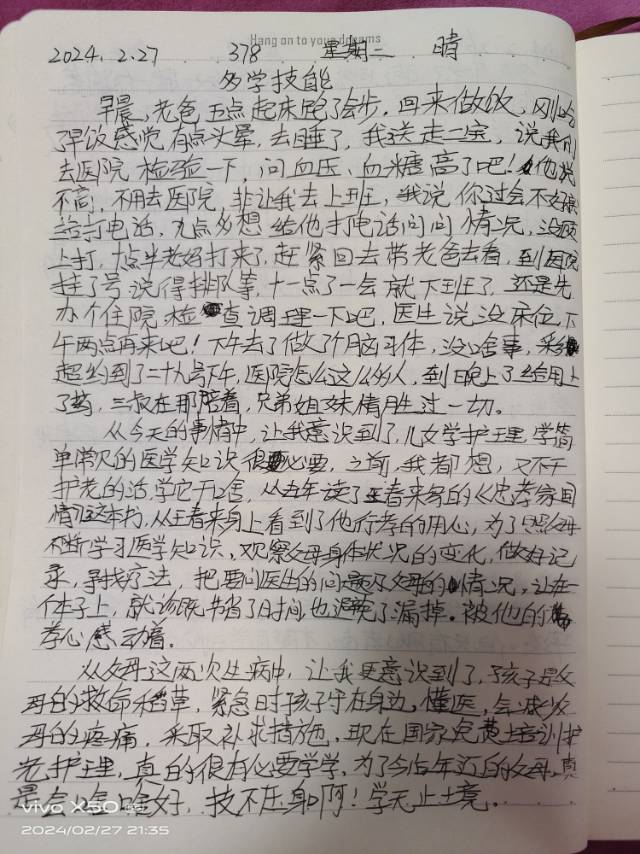 Hang on to your dreams
2024.2.27 378 星期二 晴
多学技能
早晨,老爸五点起床跑了会步,回来做饭,刚吃
了早饭感觉有点头晕,去睡了,我送走二宝,说我们
去医院检验一下,问血压、血糖高了吧!他说
不高,不用去医院,非让我去上班,我说你过会不好
给打电话,九点多想给他打电话问问情况,没顾
上打,十点半老妈打来了,赶紧回去带老爸去看,到医院
挂了号说得排队等,十一点了一会就下班了,还是先
办个住院,检查调理一下吧,医生说没床位,下
午两点再来吧!下午去了做了个脑CT,没啥事,彩
超约到了二十九号下午,医院怎么这么多人,到晚上了给用上
了药,三叔在那陪着,兄弟姐妹情胜过一切。
从今天的事情中,让我意识到了,儿女学护理,学简
单常见的医学知识很必要,之前,我都想,又不干
护老的活,学它干啥,从去年读了王春来写的《忠孝家国
情》这本书,从王春来身上看到了他行孝的用心,为了照父母
不断学习医学知识,观察父母身体状况的变化,做好记
录,寻找疗法,把要问医生的问题及父母的情况,记在一
个本子上,就诊既节省了时间,也避免了漏掉。被他的
孝心感动着。
从父母这两次生病中,让我更意识到了,孩子是父
母的救命稻草,紧急时孩子守在身边,懂医,会减少父
母的疼痛,采取补救措施,现在国家免费培训护
老护理,真的很有必要学学,为了今后年迈的父母,真
是会比不会好,技不压身啊!学无止境。
vivo X50
2024/02/27 21:35